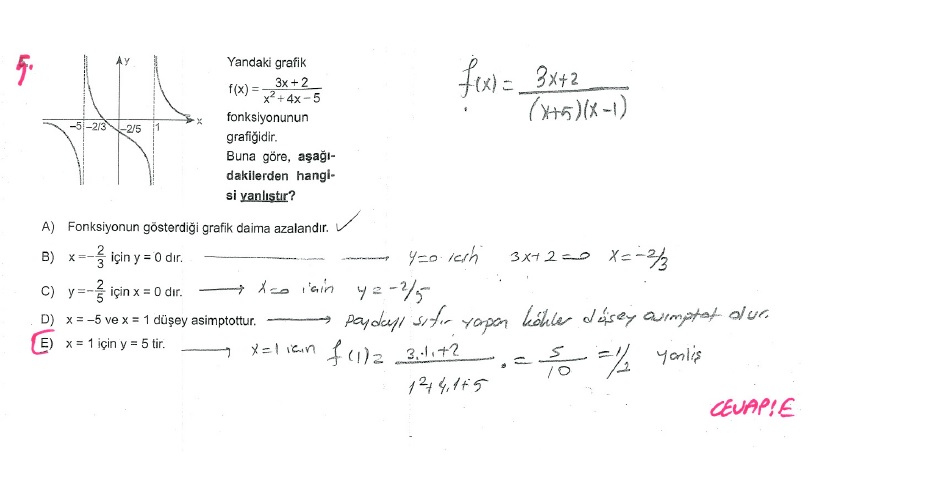 5.
y
x
-5
-2/3
-2/5
1
Yandaki grafik
f(x) = (3x + 2)/(x² + 4x – 5)
fonksiyonunun
grafiğidir.
Buna göre, aşağı-
dakilerden hangi-
si yanlıştır?
f(x) = (3x+2)/((x+5)(x-1))
A) Fonksiyonun gösterdiği grafik daima azalandır. ✓
B) x = –2/3 için y = 0 dır. → y=0 için 3x+2=0 x=-2/3
C) y = –2/5 için x = 0 dır. → x=0 için y = -2/5
D) x = –5 ve x = 1 düşey asimptottur. → Paydayı sıfır yapan kökler düşey asimptot olur.
E) x = 1 için y = 5 tir. → x=1 için f(1) = (3.1+2)/(1²+4.1+5) = 5/10 = 1/2 yanlış
CEVAP: E